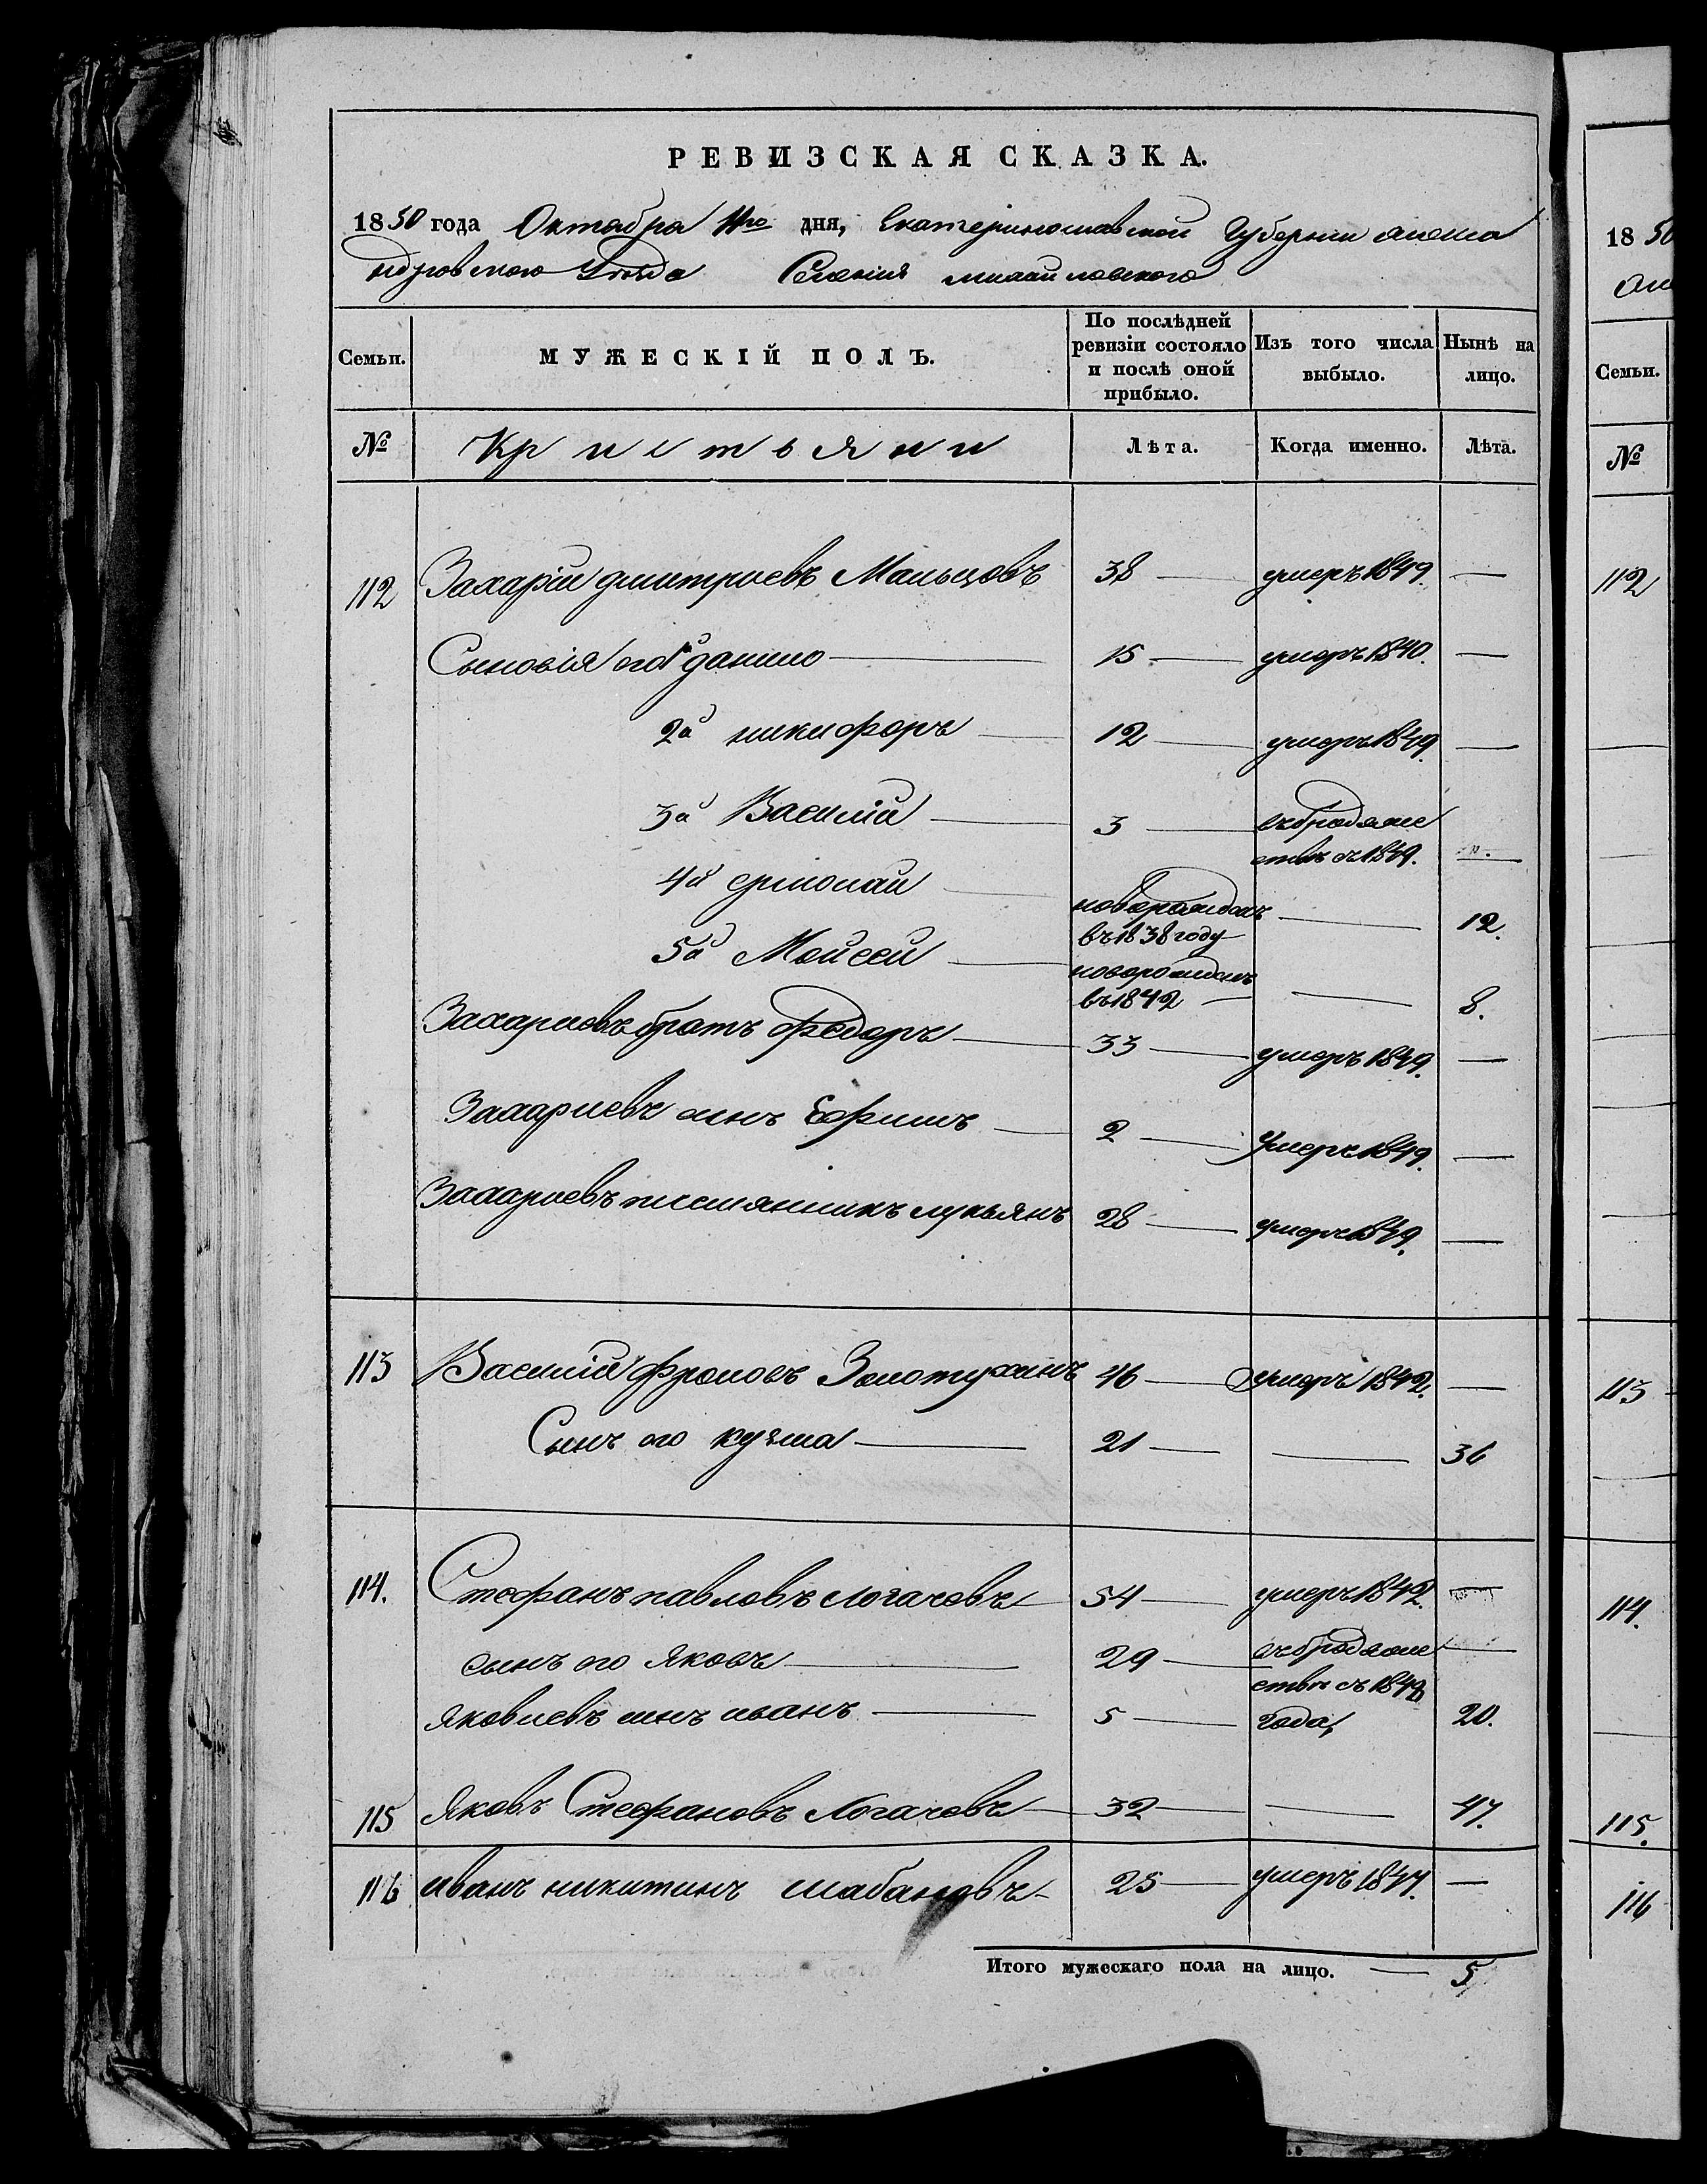 РЕВИЗСКАЯ СКАЗКА.
1850 года Октабра дня, Екатеринославской Губернии алекса
ндровского Уезда Селения михайловского
Семьи. МУЖЕСКІЙ ПОЛЪ. По послѣдней ревизіи состояло и послѣ оной прибыло. Изъ того числа выбыло. Нынѣ на лицо.
№ Кристьяни Лѣта. Когда именно. Лѣта.
112 Захарій дмитриевъ Мальцовъ 38 — умеръ 1849. —
Сыновія его 1й данило — 15 — умеръ 1840. —
2й никифоръ — 12 — умеръ 1849. —
3й Василій — 3 — въ бродяже
стве съ 1849. —
4й ермолай — новорожденъ
въ 1838 году — 12.
5й Мойсей — новорожденъ
въ 1842 — — 8.
Захариевъ братъ Федоръ — 33 — умеръ 1849. —
Захариевъ сынъ Ефимъ — 2 — Умеръ 1849. —
Захариевъ племянникъ лукьянъ 28 — умеръ 1849. —
113 Василій фроловъ Золотухинъ 46 — умеръ 1842. —
Сынъ его кузма — 21 — — 36
114. Стефанъ павловъ логачовъ 54 — умеръ 1842. —
сынъ его яковъ — 29 — въ бродяже —
стве съ 184
яковлевъ сынъ иванъ — 5 — года, 20.
115 яковъ Стефановъ Логачовъ — 32 — — 47.
116 иванъ никитинъ шабановъ — 25 — умеръ 1847. —
Итого мужескаго пола на лицо. — 5
1850
Семьи.
№
112
113
114.
115.
116